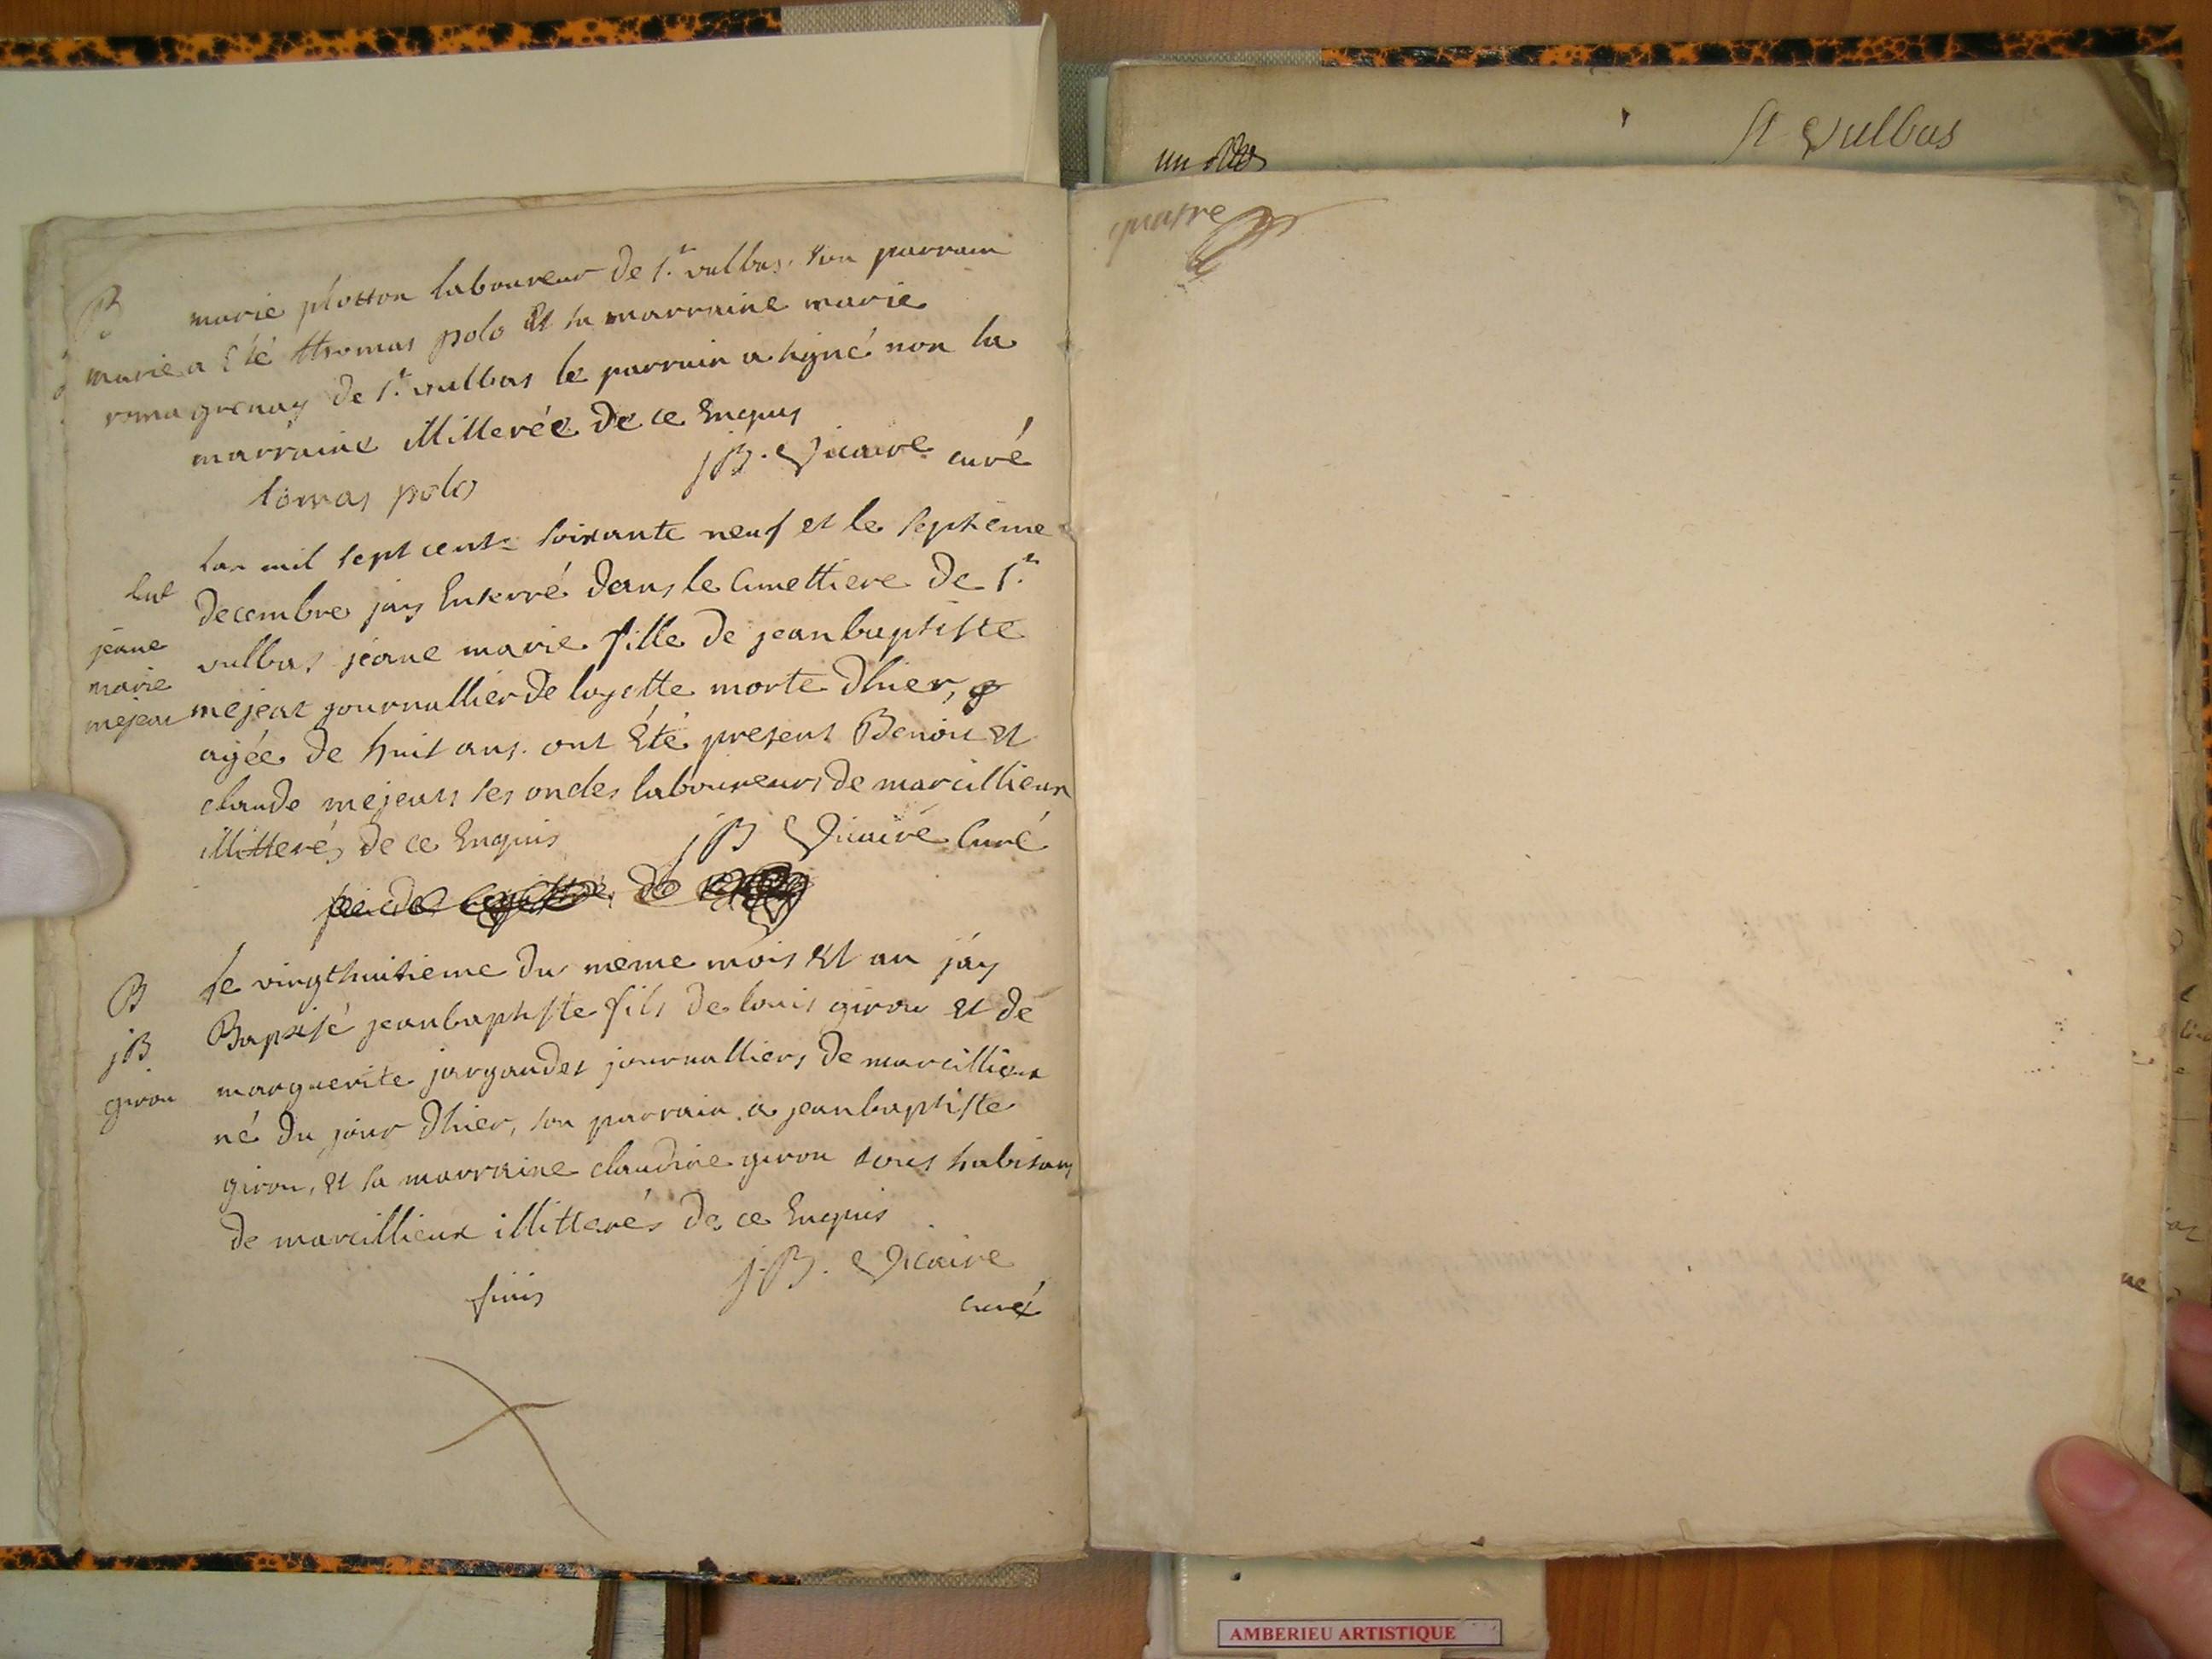 B marie plotton laboureur de s.t vulbas. son parrain
marie a Eté thomas polo Et sa marraine marie
romagrenay de s.t vulbas le parrain a signé non la
marraine illitterée de ce Enquis
tomas polo JB. Vicaire curé
lan mil sept cent soixante neuf et le septieme
Ent decembre jay Enterré dans le Cimettiere de s.t
jeane marie mejeat vulbas jeane marie fille de jean baptiste
mejeat journallier de loyette morte dhier,
agée de huit ans. ont Eté present Benoit Et
claude mejeats ses oncles laboureurs de marcillieux
illitterés de ce Enquis JB Vicaire Curé
B le vingt huitieme du meme mois Et an jay
jB Baptisé jean baptiste fils de louis giron Et de
giron marguerite jargaudet journalliers de marcillieux
né du jour dhier, son parrain a jean baptiste
giron, Et sa marraine claudine giron touts habitans
de marcillieux illitterés de ce Enquis
J.B. Vicaire
finis curé
St Vulbas
un
quatre
AMBERIEU ARTISTIQUE